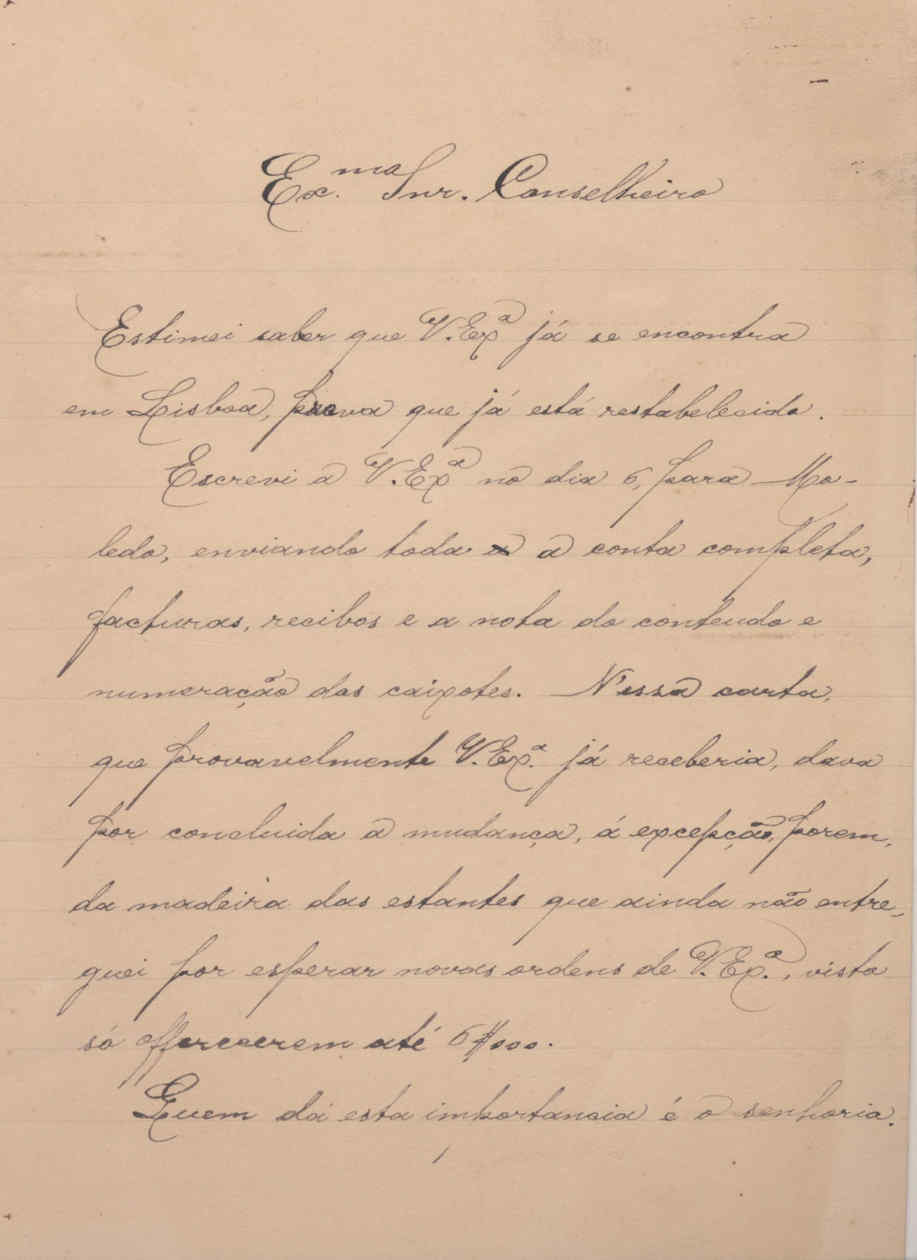 Ex.mo Snr. Conselheiro
Estimei saber que V. Exª já se encontra
em Lisboa, prova que já está restabelecido.
Escrevi a V. Exª no dia 6, para Mo-
ledo, enviando toda a a conta completa,
facturas, recibos e a nota do conteudo e
numeração dos caixotes. N'essa carta,
que provavelmente V. Exª. já receberia, dava
por concluida a mudança, á excepção, porem,
da madeira das estantes que ainda não entre-
guei por esperar novas ordens de V. Exª., visto
só offerecerem até 6$000.
Quem dá esta importancia é o senhorio.